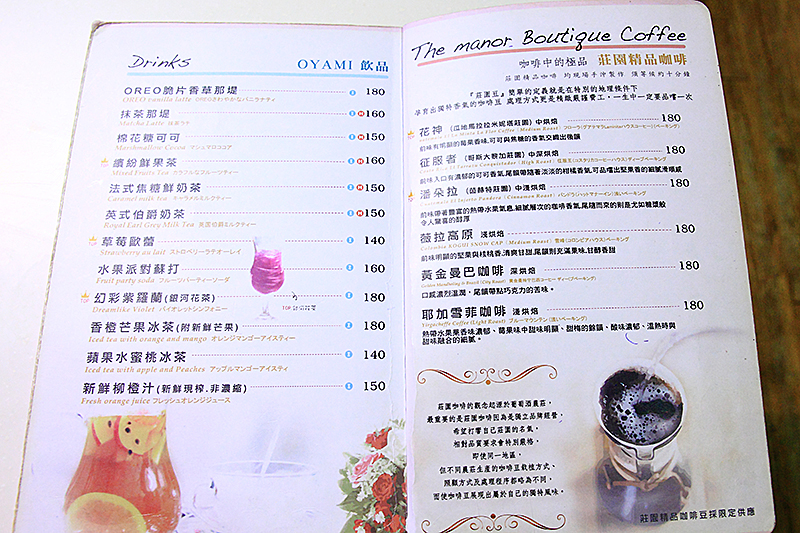 Drinks
OYAMI 飲品
OREO脆片香草那堤 180
OREO vanilla latte OREOさわやかなバニラナティ
抹茶那堤 160
Matcha Latte 抹茶ラテ
棉花糖可可 150
Marshmallow Cocoa マシュマロココア
繽紛鮮果茶 160
Mixed Fruits Tea カラフルなフルーツティー
法式焦糖鮮奶茶 150
Caramel milk tea キャラメルミルクティー
英式伯爵奶茶 150
Royal Earl Grey Milk Tea 英国伯爵ミルクティー
草莓歐蕾 140
Strawberry au lait ストロベリーラテオーレイ
水果派對蘇打 160
Fruit party soda フルーツパーティーソーダ
幻彩紫羅蘭(銀河花茶) 180
Dreamlike Violet バイオレットシンフォニー
香橙芒果冰茶(附新鮮芒果) 180
Iced tea with orange and mango オレンジマンゴーアイスティー
蘋果水蜜桃冰茶 140
Iced tea with apple and Peaches アップルマンゴーアイスティ
新鮮柳橙汁(新鮮現榨.非濃縮) 150
Fresh orange juice フレッシュオレンジジュース
The manor Boutique Coffee
咖啡中的極品 莊園精品咖啡
莊園精品咖啡 均現場手沖製作 須等候約十分鐘
『莊園豆』簡單的定義就是在特別的地理條件下
孕育出獨特香氣的咖啡豆 處理方式更是精緻嚴謹費工,一生中一定要品嚐一次
花神 (瓜地馬拉拉米妮塔莊園) 中烘焙 180
前味有明顯的莓果香味,可可與焦糖的香氣交織出後韻
征服者 (哥斯大黎加莊園) 中深烘焙 180
前味入口有濃郁的可可香氣,尾韻帶隨著淡淡的柑橘香氣,可品嚐出堅果香的細膩滑順感
潘朵拉 (茵赫特莊園) 中淺烘焙 180
前味帶著豐富的熱帶水果氣息,細膩層次的咖啡香氣,尾隨而來的則是尤如糖漿般
令人驚喜的醇厚
薇拉高原 淺烘焙 180
Colombia KOGUI SNOW CAP (Medium Roast)
前味明顯的堅果與桂桃香,清爽甘甜,尾韻則充滿果味,甘醇香甜
黃金曼巴咖啡 深烘焙 180
口感濃烈溫潤,尾韻帶點巧克力的苦味。
耶加雪菲咖啡 淺烘焙 180
Yirgacheffe Coffee (Light Roast) ブルーマウンテン(浅いベーキング)
熱帶水果果香味濃郁、莓果味中甜味明顯、甜梅的餘韻、酸味濃郁、溫熱時與
甜味融合的細膩。
莊園咖啡的觀念起源於葡萄酒農莊,
最重要的是莊園咖啡因為是獨立品牌經營,
希望打響自己莊園的名氣,
相對品質要求會特別嚴格,
即使同一地區,
但不同農莊生產的咖啡豆栽植方式、
照顧方式及處理程序都略為不同,
而使咖啡豆展現出屬於自己的獨特風味。
莊園精品咖啡豆採限定供應